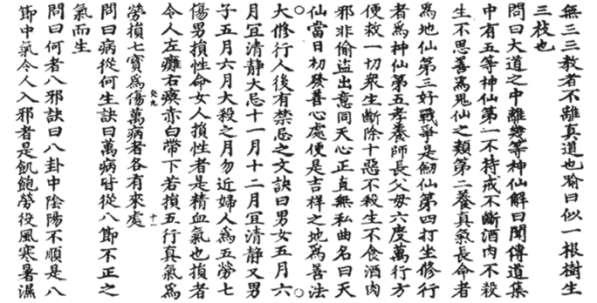 無三三教者不離真道也喻曰似一根樹生
三枝也
問曰大道之中離幾等神仙解曰聞傳道集
中有五等神仙第一不持戒不斷酒肉不殺
生不思善為鬼仙之類第二養真氣長命者
為地仙第三好戰爭是劒仙第四打坐修行
者為神仙第五孝養師長父母六度萬行方
便救一切衆生斷除十惡不殺生不食酒肉
邪非偷盜出意同天心正直無私曲名曰天
仙當日初發善心處便是吉祥之地為善法
大修行人後有禁忌之文訣曰男女五月六
月宜清静大忌十一月十二月宜清静又男
子五月六月大殺之月勿近婦人為五勞七
傷男損性命女人損性者是精血氣也損者
令人左癱右瘓赤白帶下若損五行真氣為
勞損七寶為傷萬病者各有來處
十一
問曰病從何生訣曰萬病皆從八節不正之
氣而生
問曰何者八邪訣曰八卦中陰陽不順是八
節中氣令人入邪者是飢飽勞役風寒暑濕